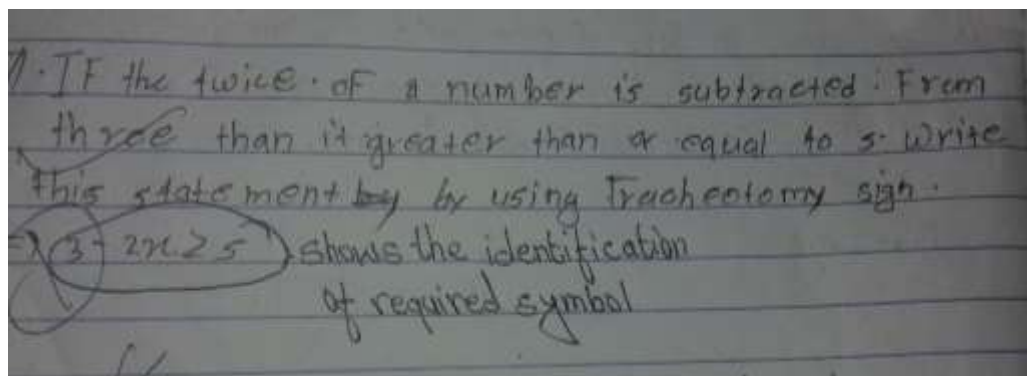 1. IF the twice. of a number is subtracted. From
three than it greater than or equal to 5. Write
this statement by by using Tracheotomy sign.
=> 3 - 2x ≥ 5 shows the identification
of required symbol